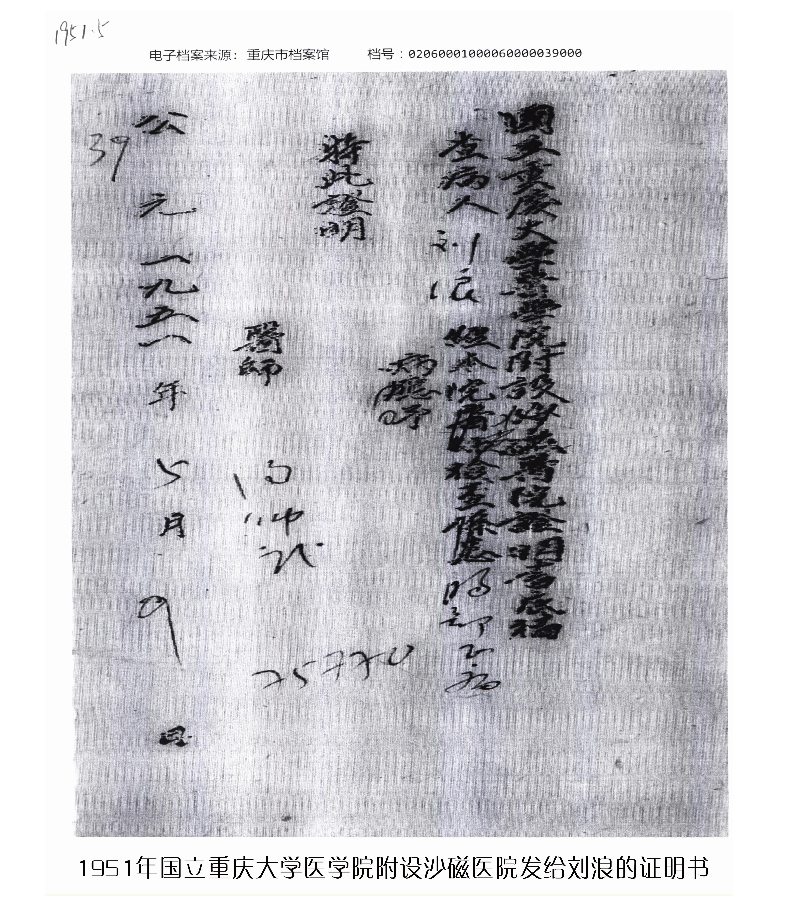 1951.5
电子档案来源: 重庆市档案馆 档号：02060001000060000039000
國立重慶大學醫學院附設沙磁醫院證明書底稿
查病人刘浪經本院 檢查係患 部 病
病
特此證明
醫師
公元一九五一年5月9日
39
25770
1951年国立重庆大学医学院附设沙磁医院发给刘浪的证明书